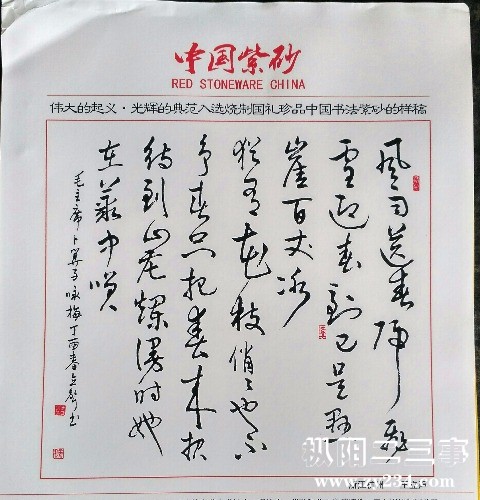 中国紫砂
RED STONEWARE CHINA
伟大的起义·光辉的典范入选烧制国礼珍品中国书法紫砂的样稿
风雨送春归飞
雪迎春到已是悬
崖百丈冰
犹有花枝俏〻也不
争春只把春来报
待到山花烂漫时她
在丛中笑
毛主席卜算子咏梅丁酉春书
枞阳二三事